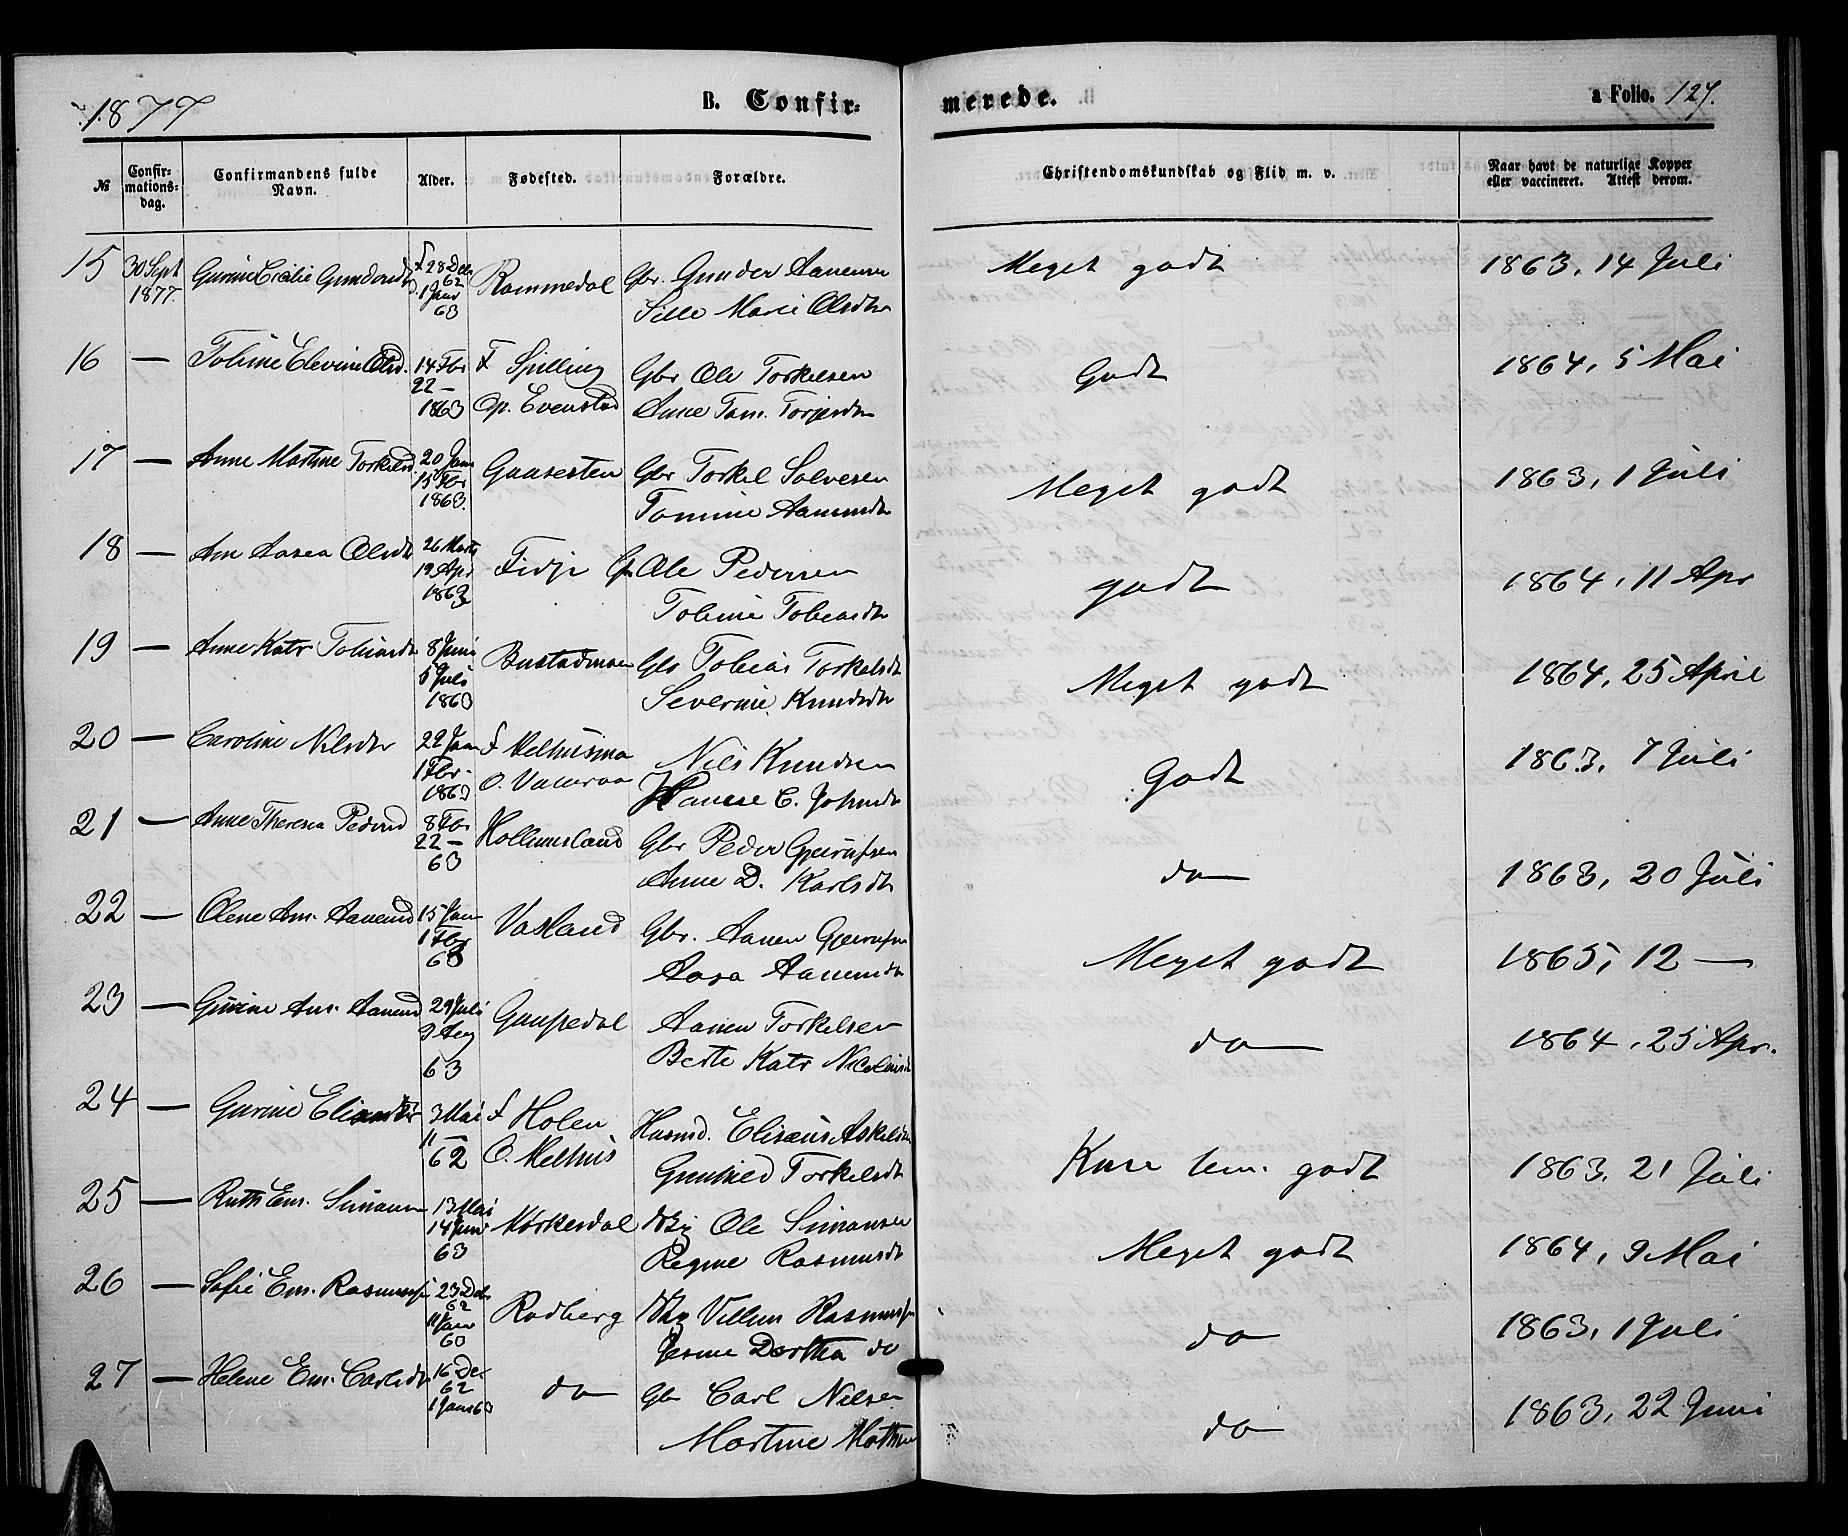 1877 B. Confirmerede. a Folio. 127.
№ Confirmationsdag. Confirmandens fulde Navn. Alder. Fødested. Forældre. Christendomskundskab og Flid m. v. Naar havt de naturlige Kopper eller vaccineret. Attest derom.
15 30 Sept 1877. Gurine Cicilie Gundersdt f. 28 Dec 62 D. 1 Janr 63 Rammedal Gbr. Gunder Aanensen Meget godt 1863, 14 Juli
Sille Marie Olsdtr
16 — Tobine Elevine Olsd. 14 Fbr 22 — 1863 F Spilling Op. Evenstad Gbr Ole Torkelsen Godt 1864, 5 Mai
Anne Tom. Torjersdtr
17 — Anne Martine Torkelsd. 20 Janr 15 Fbr 1863. Gaasesten Gbr Torkel Salvesen Meget godt 1863, 1 Juli
Tomine Aanensdtr
18 — Ane Aasea Olsdtr 26 Marts 19 Apr 1863 Fidje Gbr Ole Pedersen godt 1864, 11 Apr
Tobine Tobiasdtr
19 — Anne Katr Tobiasdtr 8 Juni 5 Juli 1863 Bustadmoen Gbr Tobias Torkelsdt Meget godt 1864, 25 April
Severine Knudsdtr
20 — Caroline Nilsdtr 22 Jan 1 Fbr. 1863 F Melhusmo O. Vatneraa Nils Knudsen Godt 1863, 7 Juli
Hanne C. Johnsdt
21 — Anne Theresea Pedersd 8 Fbr 22 — 63 Hollumsland Gbr Peder Gjerulfsen do 1863, 20 Juli
Anne D. Karlsdt
22 — Olene Am. Aanensd 15 Jan 1 Fbr 63 Vasland Gbr. Aanen Gjerulfsen Meget godt 1865, 12 —
Aasa Aanensdt
23 — Gurine Am. Aanensd 29 Juli 9 Aug 63 Gaupedal Aanen Torkelsen do 1864, 25 Apr.
Berte Katr Nicolaisdt
24 — Gurine Elisæusdtr 3 Mai 11 — 62 F Holen O. Melhus Husmd. Elisæus Askelsen godt 1863, 21 Juli
Gunhild Torkelsdt
25 — Ruth Em. Simonsen 13 Mai 14 Juni 63 Mørkesdal Ole Simonsen Meget godt 1864, 9 Mai
Regine Rasmusdt
26 — Sofie Em. Rasmussen 23 Dec 62 11 Janr 63 Rodberg Villum Rasmussen do 1863, 1 Juli
Dorthea do
27 — Helene Em. Carlsdtr 16 Dec 62 1 Janr 63 do Gbr Carl Nilsen do 1863, 22 Juni
Martine